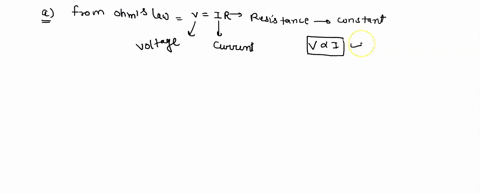 a) from ohm's law = V = IR → Resistance → constant
voltage current V ∝ I